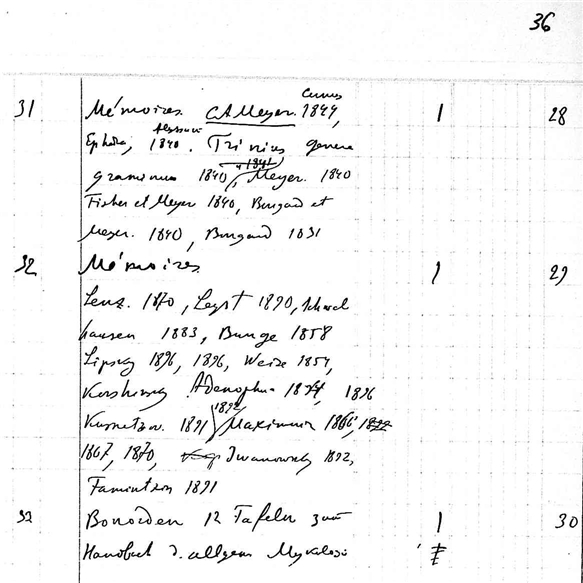 36
Cornus
31 Mémoires. CAMeyer. 1849, 1 28
Alyssum
Ephedra, 1840. Trinius genera
1841
graminum 1840, Meyer. 1840
Fisher et Meyer 1840, Bongard et
Meyer. 1840, Bongard 1831
32 Mémoires 1 29
Lenz. 1870, 1890, Schmal
hausen 1883, Bunge 1858
Lipsky 1896, 1896, Weise 1854,
Korshinsky Adenophora 1894, 1896
1892
Kusnetzow. 1891 Maximowicz 1866,
1867, 1870, Iwanowsky 1892,
Famintzin 1891
33 Bonorden 12 Tafeln zum 1 30
Handbuch d. allgem Mykologie